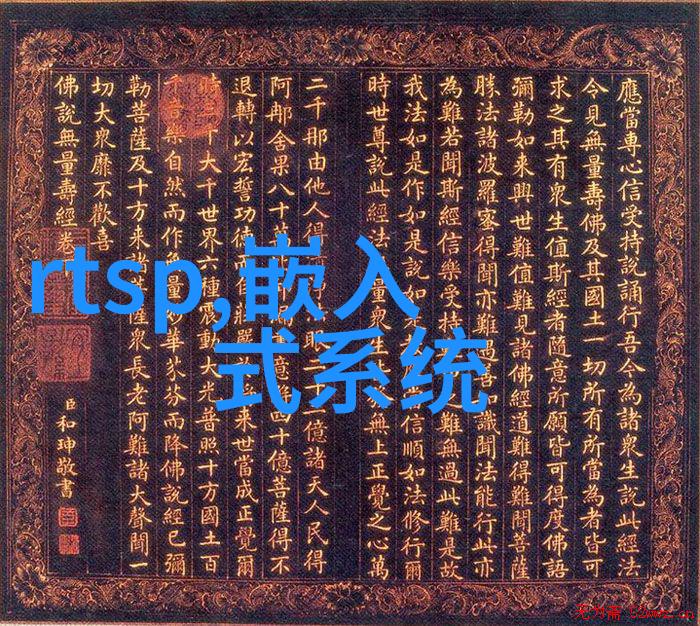 應當專心信受持說誦行吾今為諸眾生說此經法
今見無量壽佛及其國土一切所有所當為者皆可
求之其有眾生值斯經者隨意所願皆可得度佛語
彌勒如來興世難值難見諸佛經道難得難聞菩薩
勝法諸波羅蜜得聞亦難遇善知識聞法能行此亦
為難若聞斯經信樂受持之難無過此難是故
我法如是作如是說如信順如法修行爾
時世尊說此經法量眾生發無上正覺之心萬
二千那由他人得眼二億諸天人民得
阿那舍果八十億四十億菩薩得不
退轉以宏誓功德而莊嚴來世當成正覺爾
時千大千世界六種震動大光普照十方國土百
千音樂自然而作無量妙華芬而降佛說經已彌
勒菩薩及十方來諸菩薩眾長老阿難諸大聲聞一
切大眾靡不歡喜
佛說無量壽經卷
臣和珅敬書
rtsp,嵌入
式系统